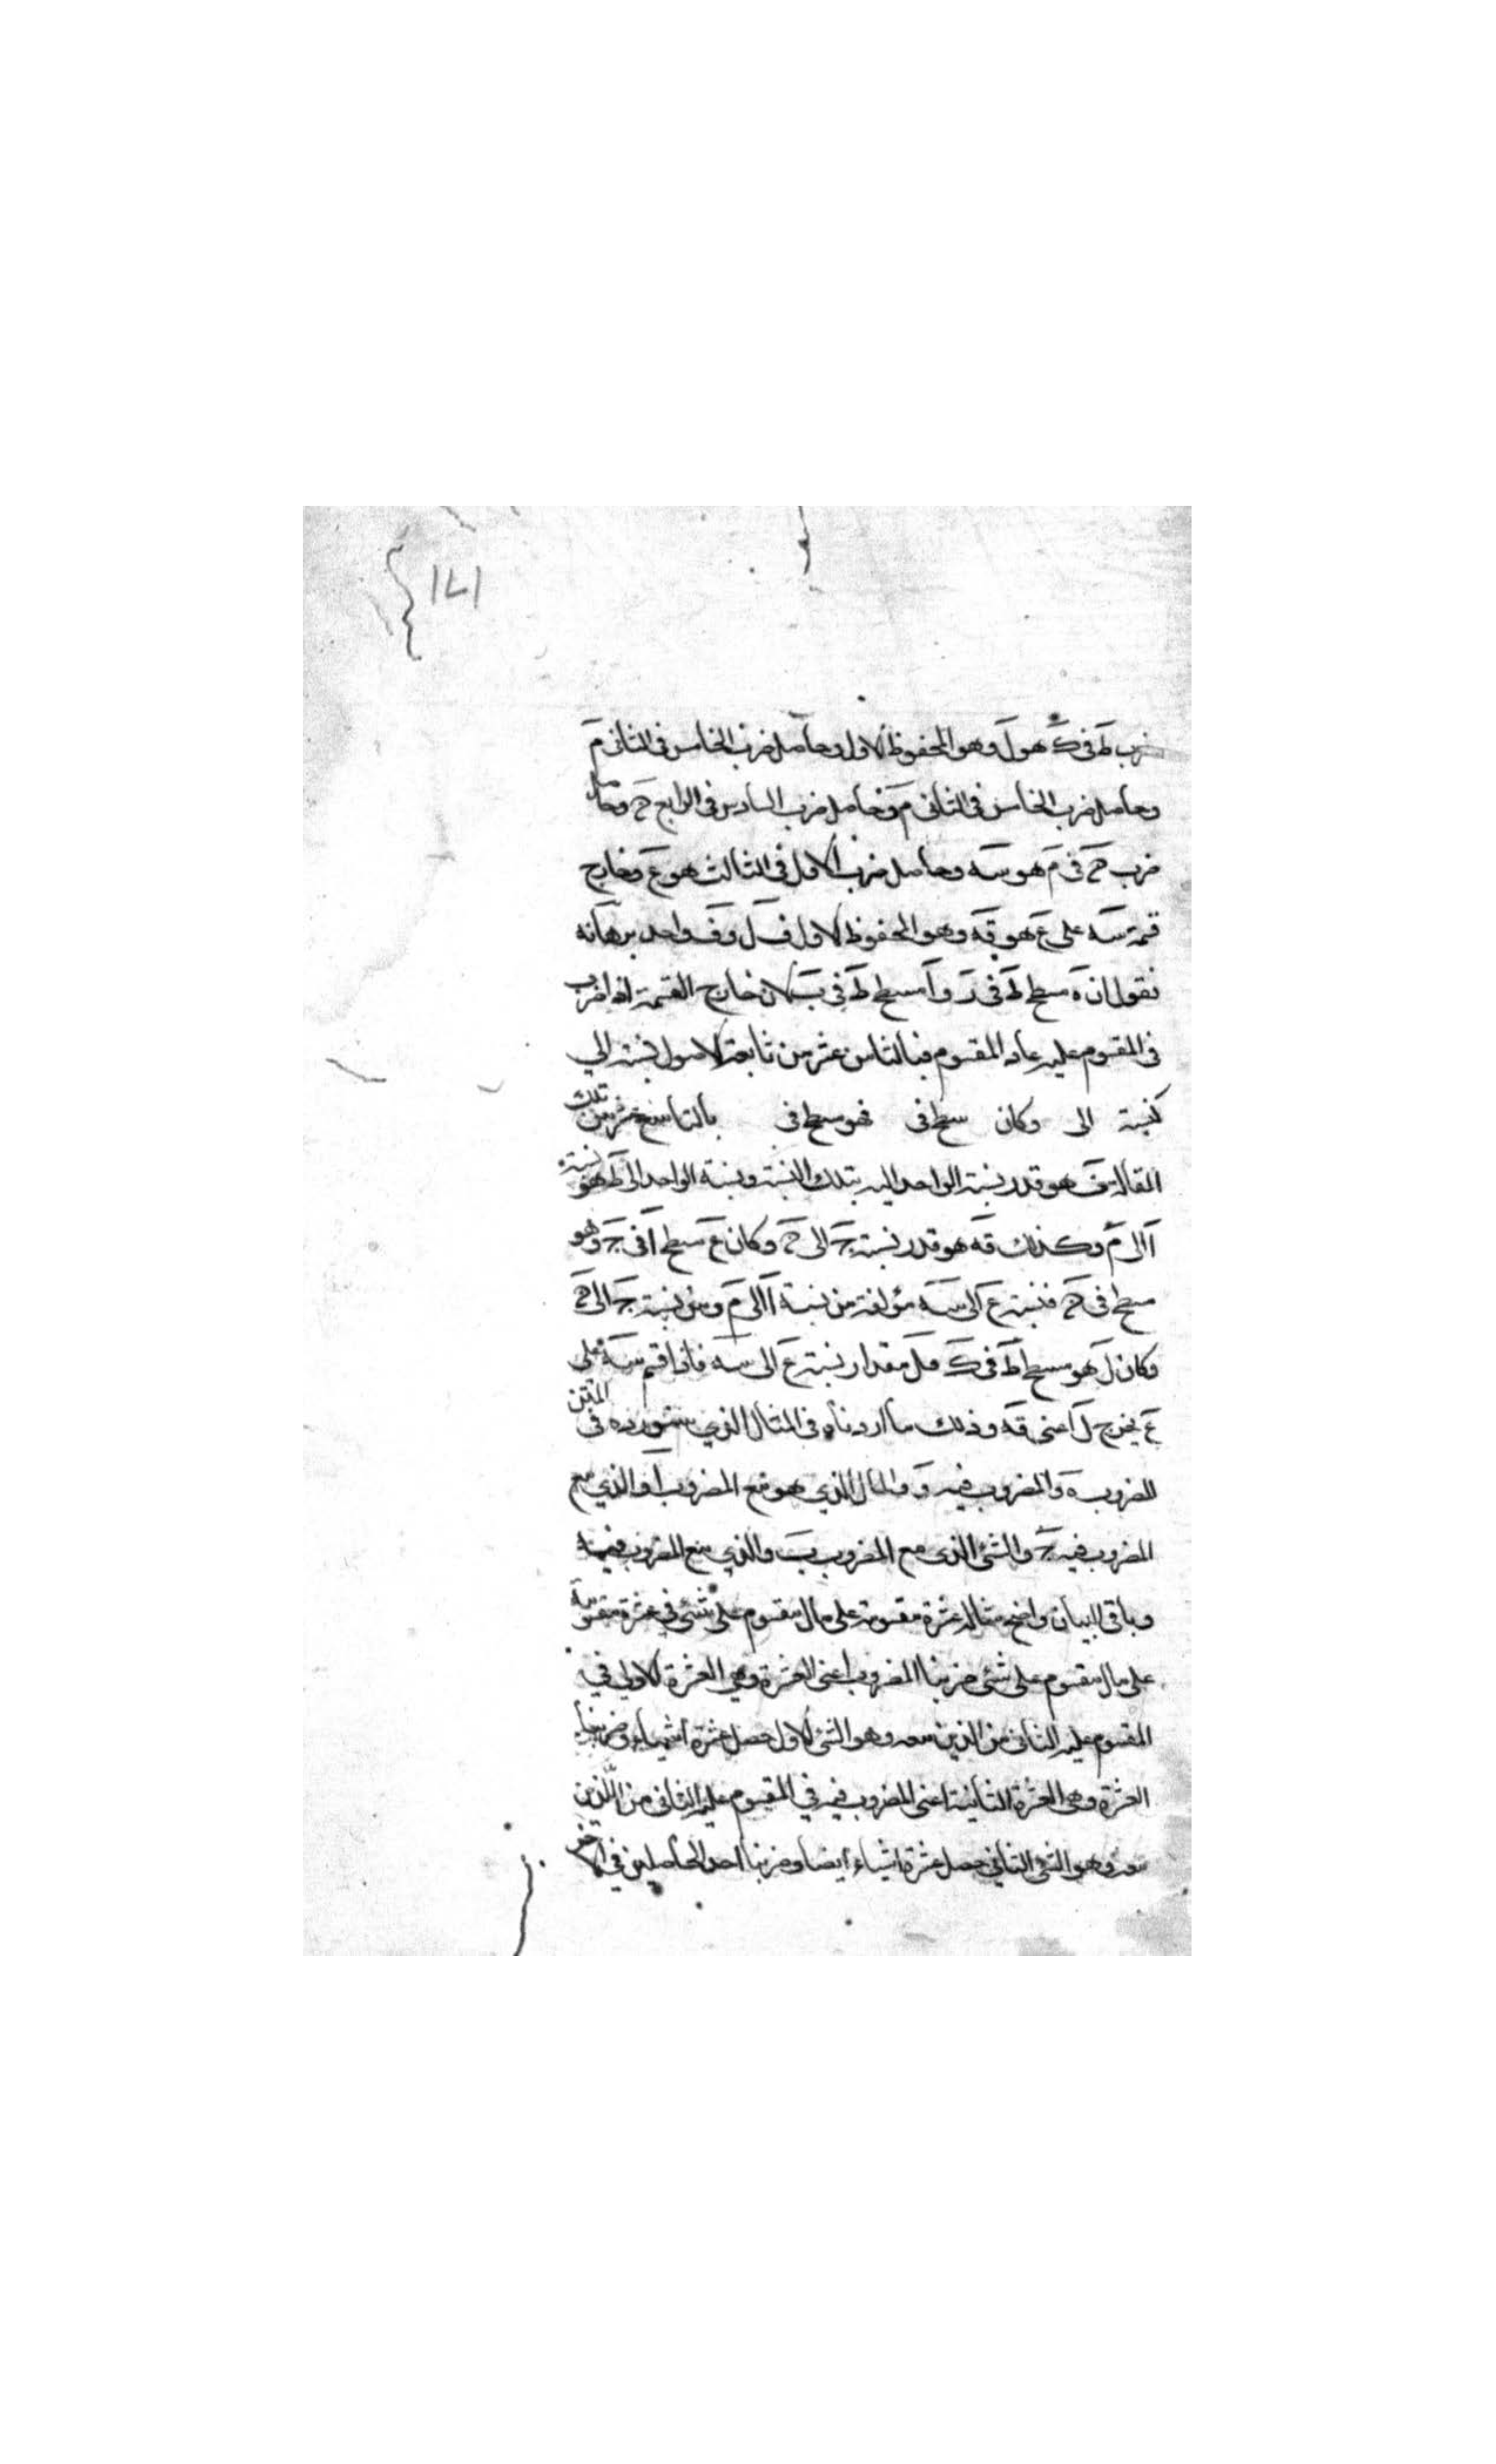 ١٧١
ضرب ط فى ك هو ل وهو المحفوظ الاول وحاصل ضرب الخامس فى الثانى م
وحاصل ضرب الخامس فى الثانى م وحاصل ضرب السادس فى الرابع ح وحاصل
ضرب ح فى م هو سه وحاصل ضرب الاول فى الثالث هو ع وخارج
قسمة سه على ع هو قه وهو المحفوظ الاول ف ل و ق واحد برهانه
نقول ان ه مسطح ط فى د و ا مسطح ط فى ب لان خارج القسمة اذا ضرب
فى المقسوم عليه عاد المقسوم فبالثامن عشر من سابعة الاصول نسبة الى
كنسبة الى وكان سطح فى فهو سطح فى بالتاسع عشر من تلك
المقالة هو قدر نسبة الواحد اليه بتلك النسبة ونسبة الواحد الى ط هو نسبة
ا الى م وكذلك قه هو قدر نسبة ج الى ح وكان ع مسطح ا فى ج وهو
مسطح فى ح فنسبة ع الى سه مؤلفة من نسبة ا الى م ومن نسبة ج الى ح
وكان ل هو مسطح ط فى ك فل مقدار نسبة ع الى سه فاذا قسم سه على
ع يخرج ل اعنى قه وذلك ما اردناه فى المثال الذي سنورده فى المتن
المضروب ه والمضروب فيه و والمال الذي هو مع المضروب ا والذي مع
المضروب فيه ج والشئ الذى مع المضروب ب والذي مع المضروب فيه
وباقى البيان واضح مثاله عشرة مقسومة على مال مقسوم على شئ فى عشرة مقسومة
على مال مقسوم على شئ ضربنا المضروب اعنى العشرة وهي العشرة الاولي في
المقسوم عليه الثانى من الذين معه وهو الشئ الاول حصل عشرة اشياء وضربنا
العشرة وهى العشرة الثانية اعنى المضروب فيه في المقسوم عليه الثانى من اللذين
معه وهو الشئ الثاني حصل عشرة اشياء ايضا وضربنا احد الحاصلين في الاخر